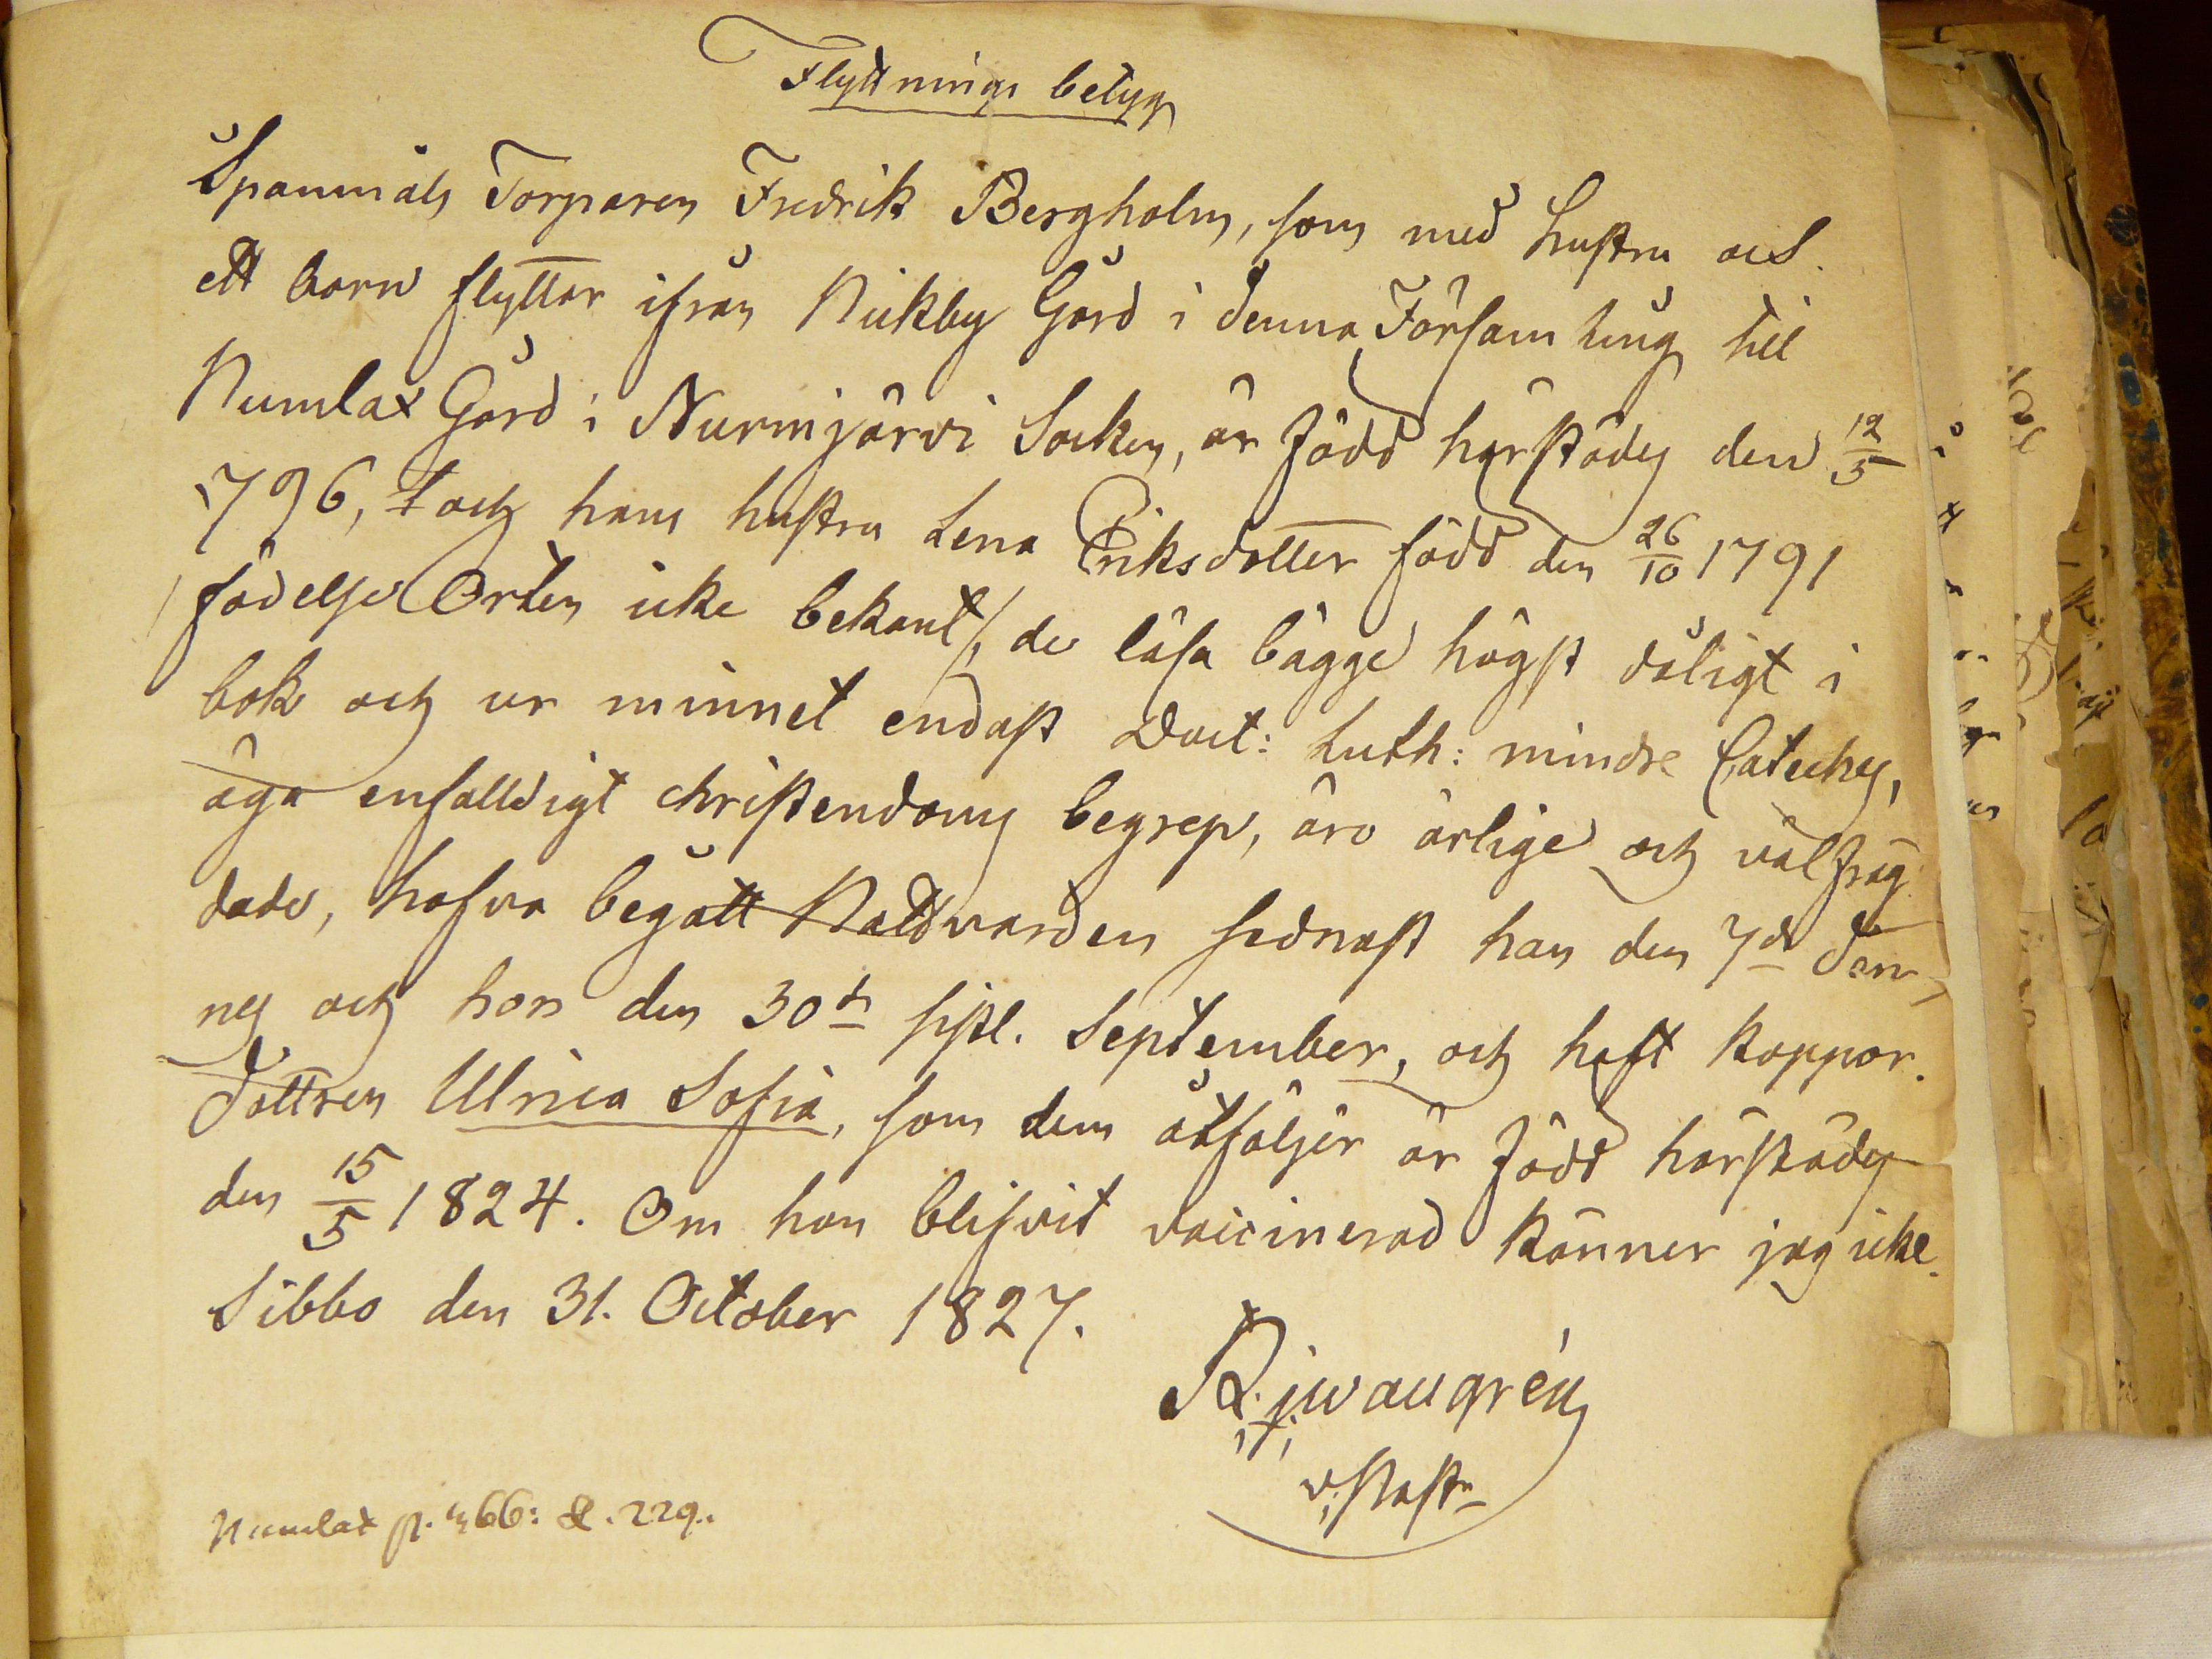 Flyttnings betyg
Spanmåls Torparen Fredrik Bergholm, som med hustru och
ett barn flyttar ifrån Nickby Gård i denna Församling till
Numlax Gård i Nurmijärvi Socken, är född härstädes den 12/5
1796, och hans hustru Lena Eriksdotter född den 26/10 1791
födelse Orten icke bekant/, de läsa bägge högst dåligt i
bok och ur minnet endast Doct: Luth: mindre Cateches,
äga enfalldigt christendoms begrep, äro ärlige och välfräg
dade, hafva begått Nattvarden sednast han den 7de den
nes och hon den 30de sistl. September, och haft koppor.
Dottren Ulrica Sofia, som dem åtföljer är född härstädes
den 15/5 1824. Om hon blifvit vaccinerad känner jag icke.
Sibbo den 31. October 1827.
v. Past
Numlax p. 466: & . 229.